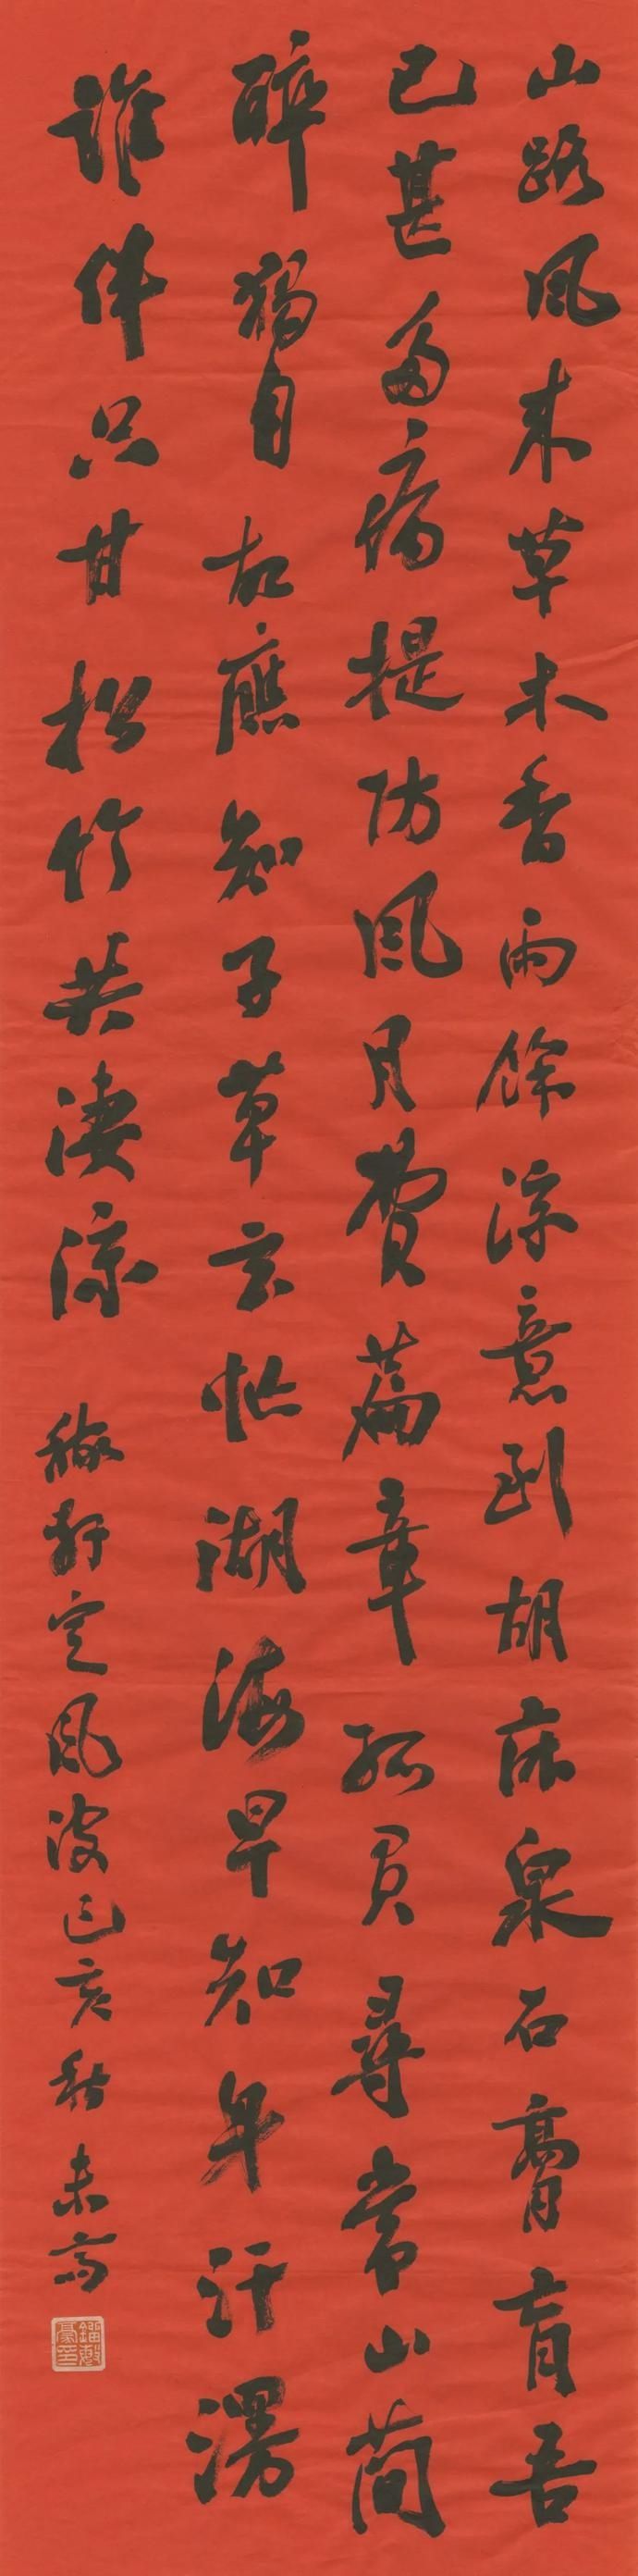 山路風来草木香雨餘涼意到胡床泉石膏肓吾
已甚多病提防風月費篇章孤負尋常山簡
醉獨自故應知子草玄忙湖海早知身汗漫
誰伴只甘松竹共淒涼 稼軒定風波己亥秋未高